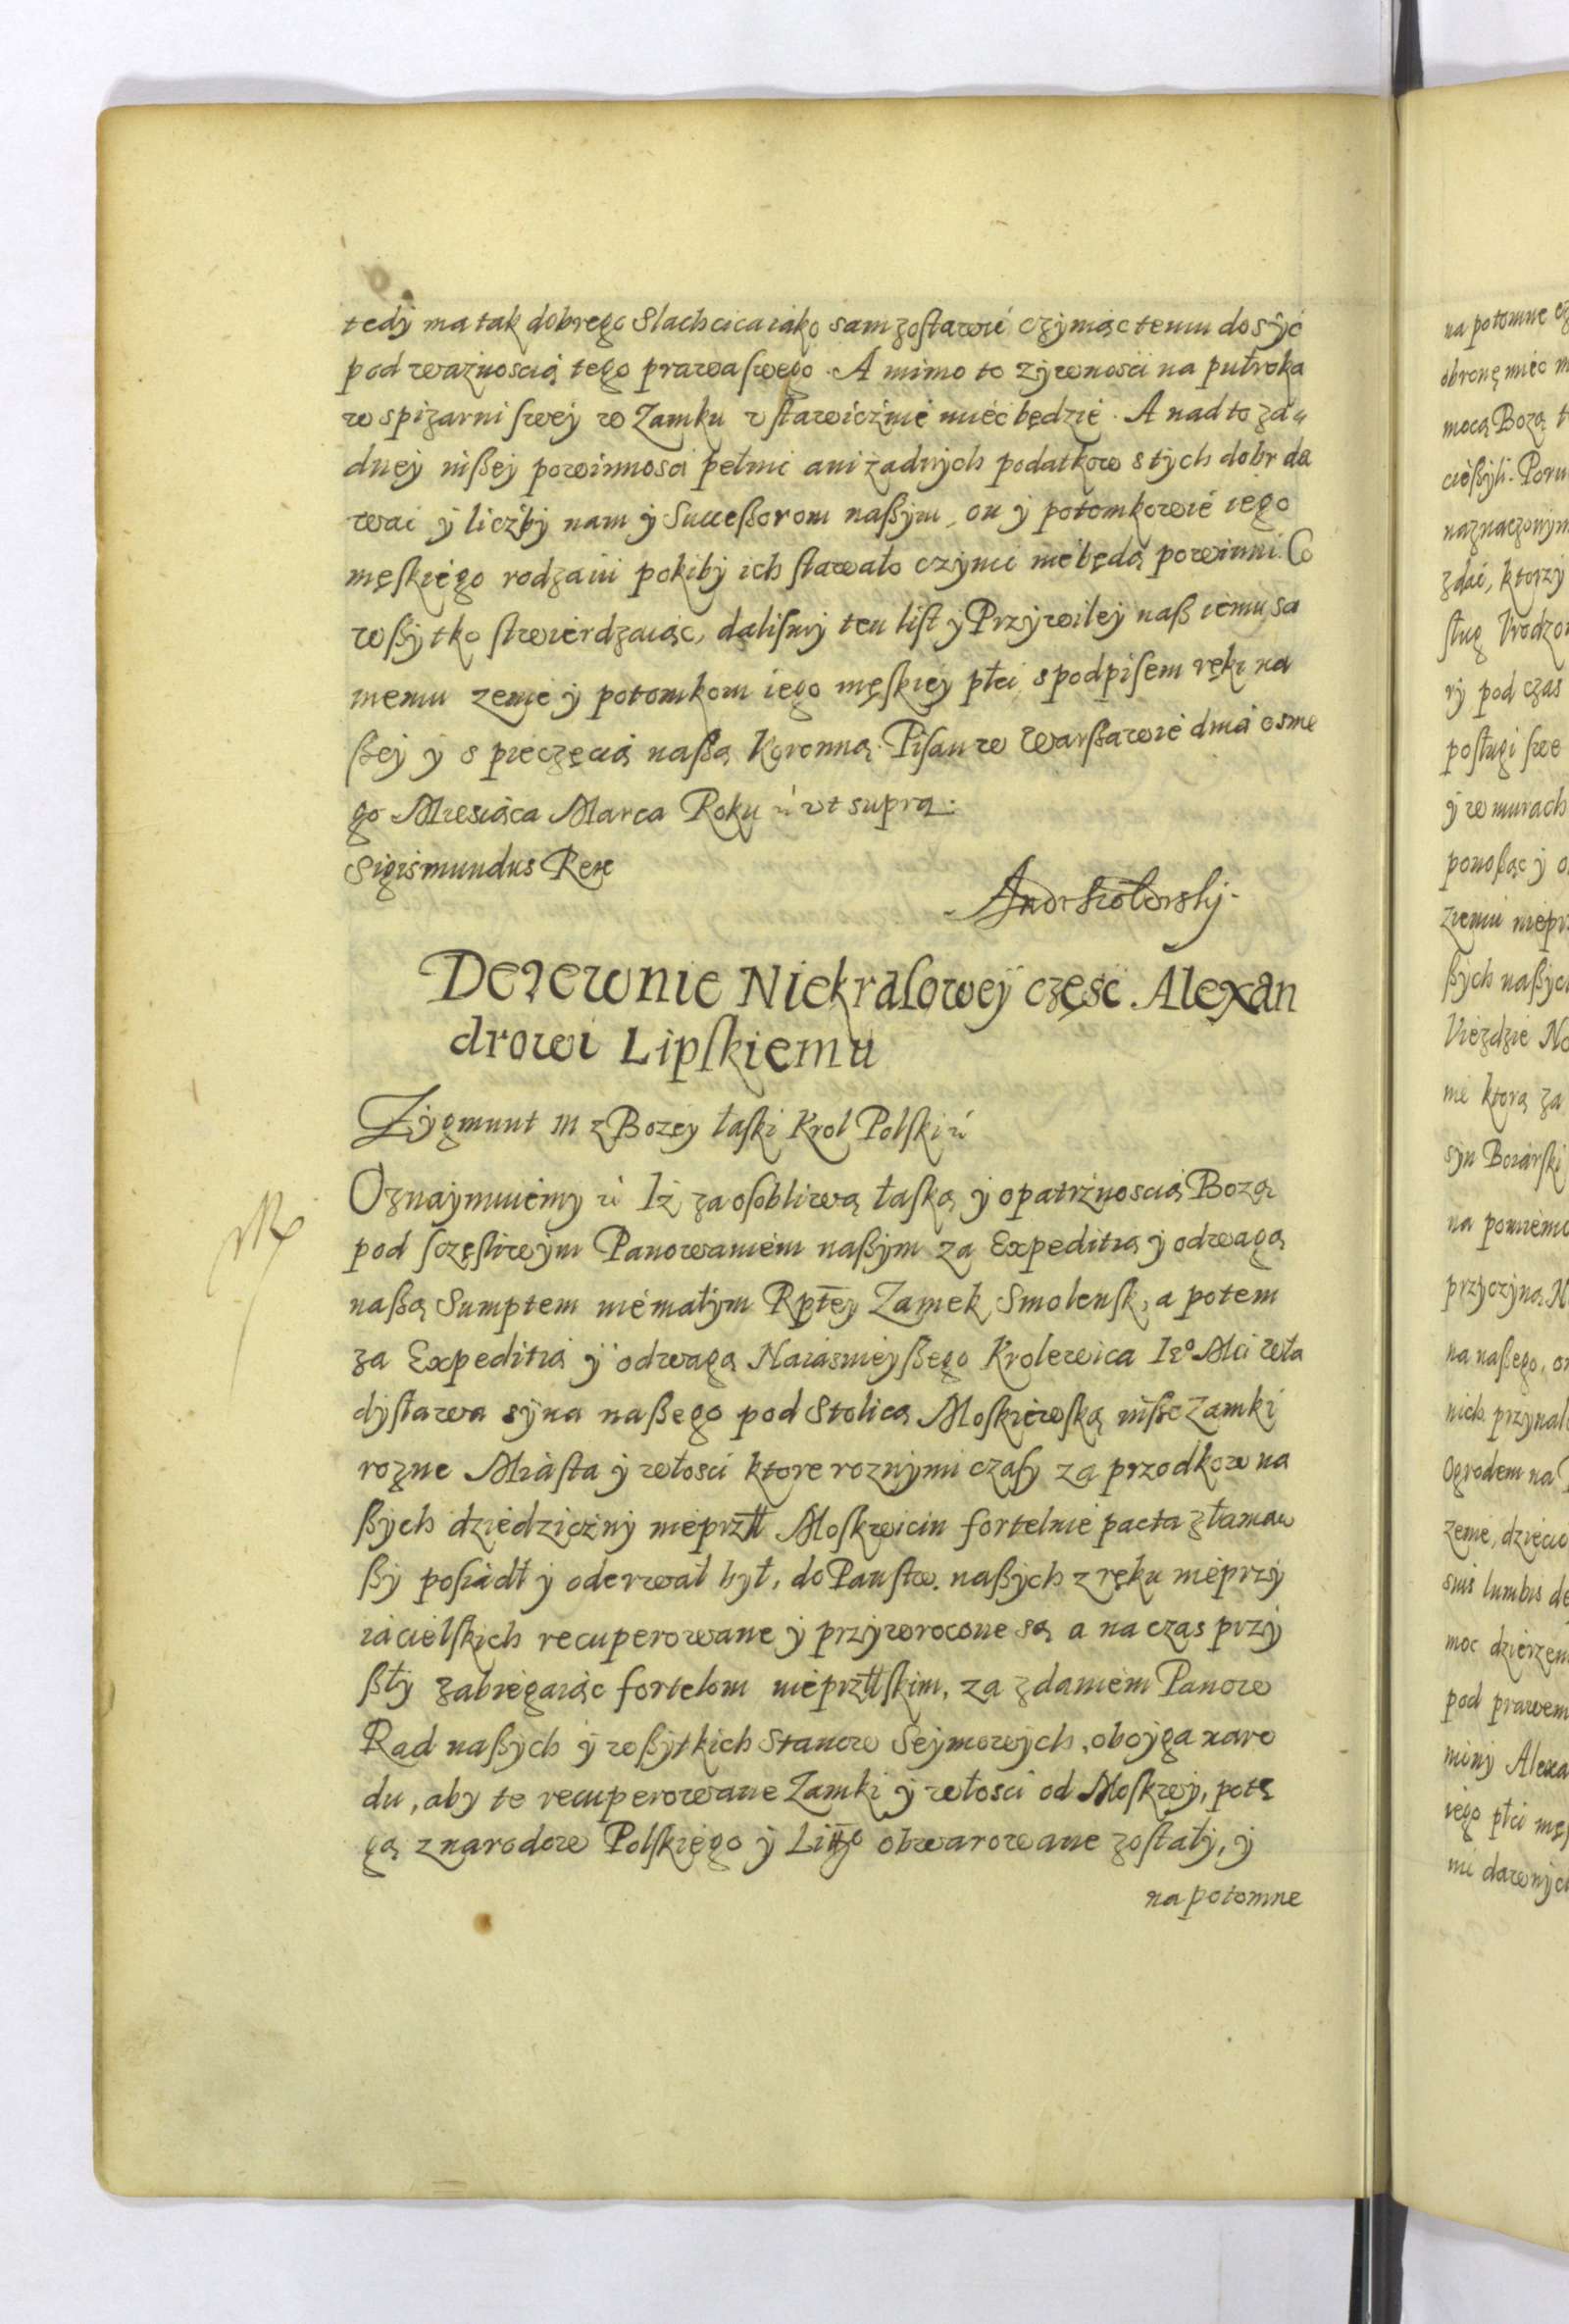 tedy ma tak dobrego Slachcica iako sam zostawić czyniąc temu dosyć
pod ważnoscią tego prawa swego. A mimo to żywnosci na pułroka
w spizarni swey w Zamku vstawicżnie mieć będzie. A nadto ża„
dney inßey powinnosci pełnić ani żadnych podatkow s tych dobr da
wać y liczby nam y Successorom naßym, on y potomkowie iego
męskiego rodzaiu pokiby ich stawało czynić nie będą powinni. Co
wßytko stwierdzaiąc, dalismy ten list y Przywiley naß iemu sa
memu żenie y potomkom iego męskiey płci s podpisem ręki na
ßey y s pieczęcią naßą Koronną. Pisan w Warßawie dnia osme
go Miesiąca Marca Roku ut supra.
Sigismundus Rex
Derewnie Niekrasowey częsć Alexan
drowi Lipskiemu
Zygmunt III z Bozey łaski Krol Polski
Oznaymuiemy Iż za osobliwą łaską y opatrżnoscią Bożą
pod sczęsliwym Panowaniem naßym za Expeditią y odwagą
naßą Sumptem niemałym Rptey Zamek Smolensk, a potem
za Expeditią y odwagą Naiasnieyßego Krolewica Iego Mci Wła
dysława syna naßego pod Stolicą Moskiewską inße Zamki
rozne Miasta y włosci ktore roznymi czasy za przodkow na
ßych dziedziczny nieprztl Moskwicin fortelnie pacta złamaw
ßy posiadł y oderwał był, do Panstw naßych z ręku nieprzy
iacielskich recuperowane y przywrocone są a na czas przy
ßły zabiegaiąc fortelom nieprztlskim, za zdaniem Panow
Rad naßych y wßytkich Stanow Seymowych, oboyga naro
du, aby te recuperowane Zamki y włosci od Moskwy, potę
gą z narodow Polskiego y Littgo obwarowane zostały, y
na potomne